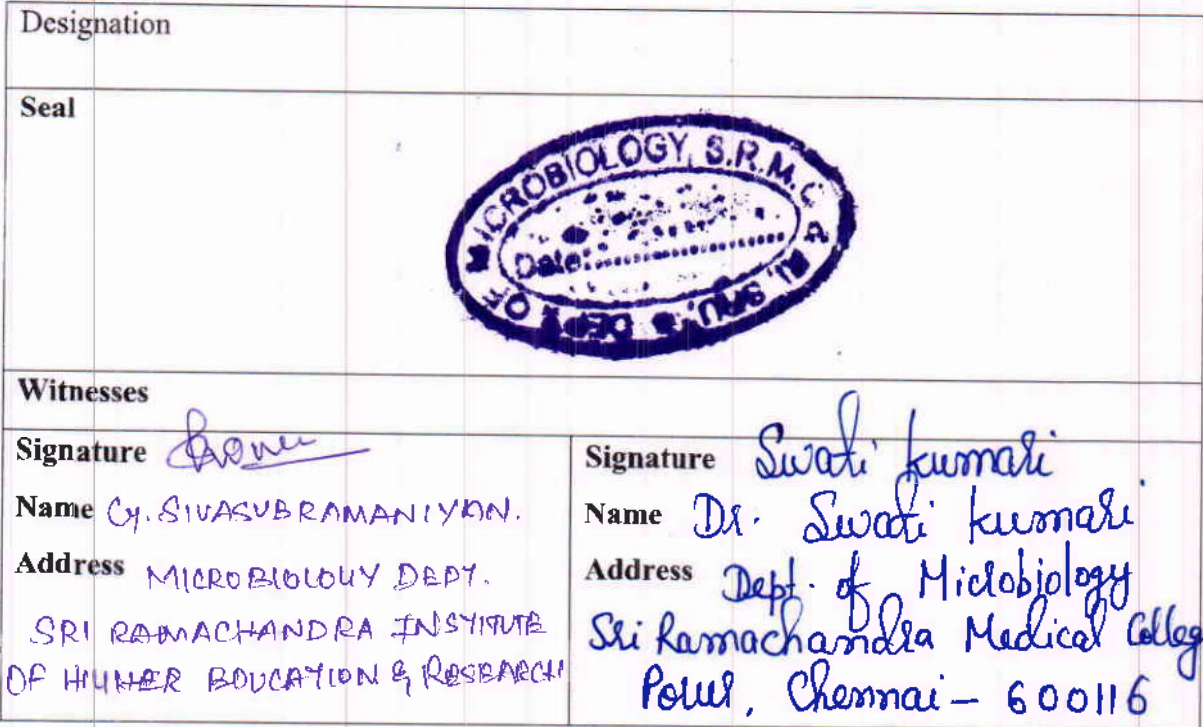 Designation
Seal
DEPT OF MICROBIOLOGY, S.R.M.C & RI, SRU,
Date:
Witnesses
Signature
Name G. SIVASUBRAMANIYAN.
Address MICROBIOLOGY DEPT.
SRI RAMACHANDRA INSTITUTE
OF HIGHER EDUCATION & RESEARCH
Signature Swati kumari
Name Dr. Swati kumari
Address Dept. of Microbiology
Sri Ramachandra Medical Colleg
Porur, Chennai - 600116